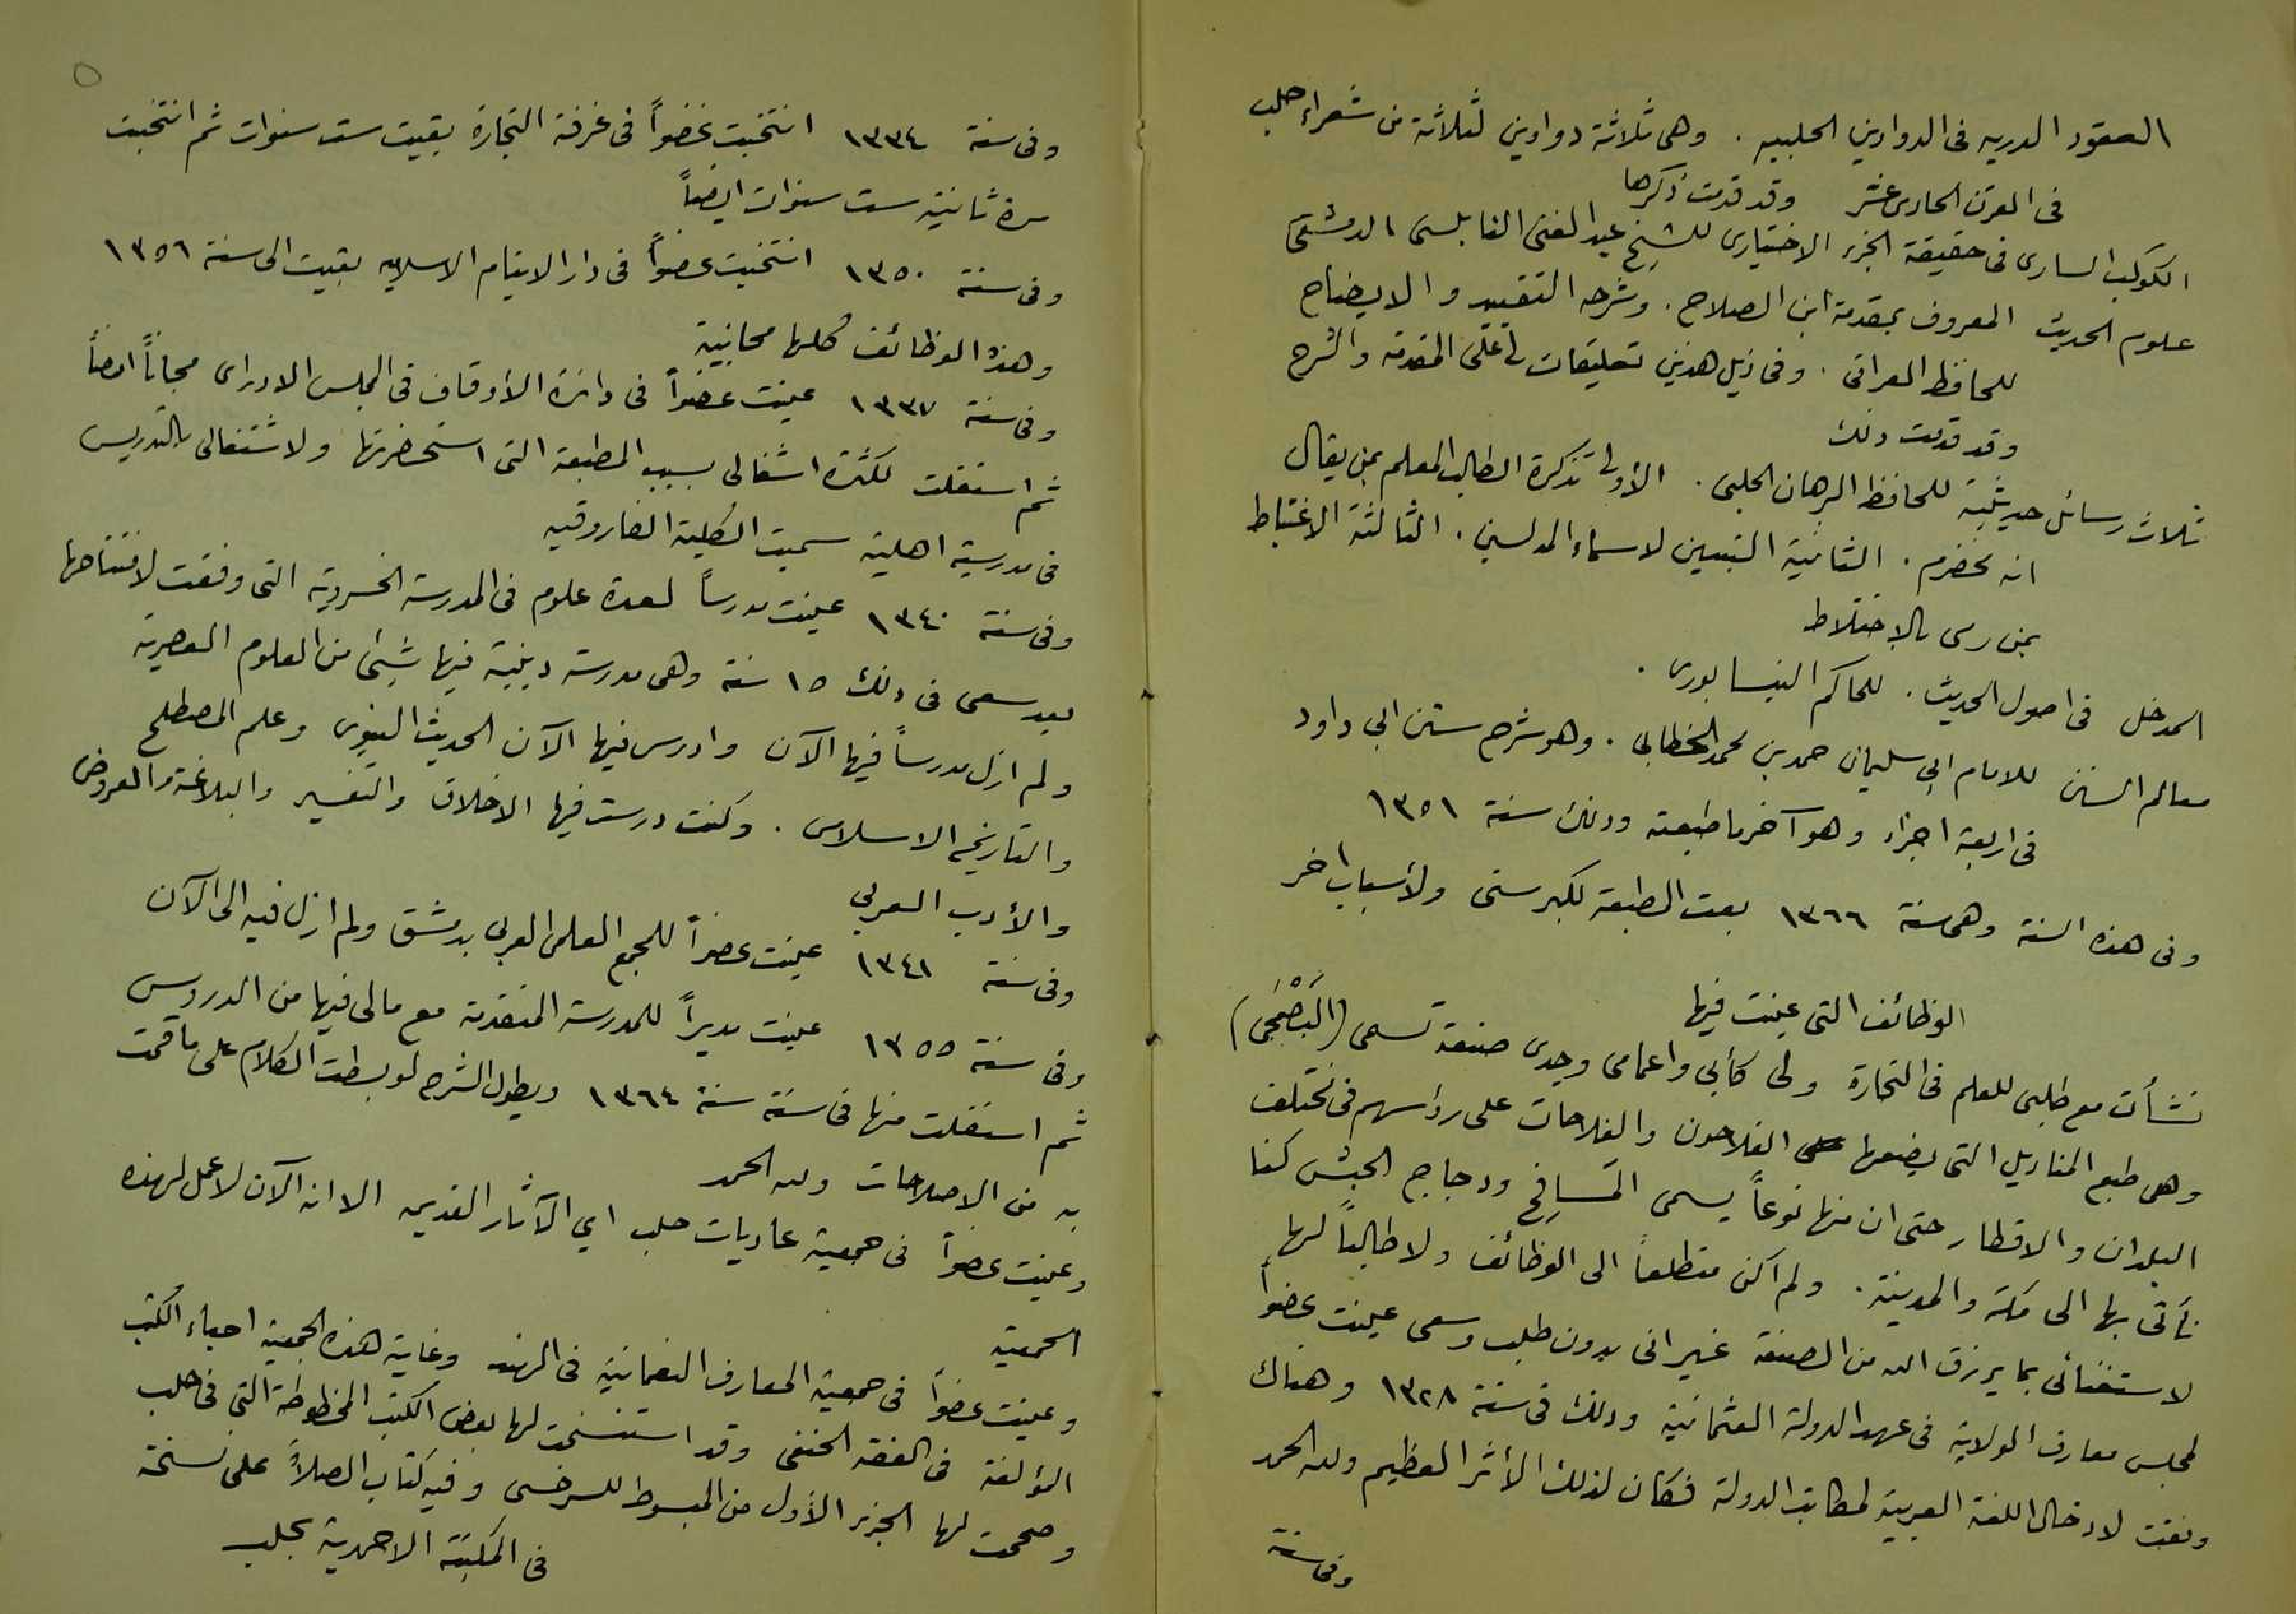 العقود الدريه في الدواوين الحلبيه . وهي ثلاثة دواوين لثلاثة من شعراء حلب
في القرن الحادي عشر وقد قدمت ذكرها
الكوكب الساري في حقيقة الجزء الاختياري للشيخ عبد الغني النابلسي الدمشقي
علوم الحديث المعروف بمقدمة ابن الصلاح . وشرحه التقييد والايضاح
للحافظ العراقي . وفي ذيل هذين تعليقات لي على المقدمه والشرح
وقد قدمت ذلك
ثلاث رسائل حديثية للحافظ البرهان الحلبي . الأولى تذكرة الطالب المعلم بمن يقال
انه مخضرم . الثانية التبيين لاسماء المدلسين . الثالثة الاغتباط
بمن رمي بالاختلاط
المدخل في اصول الحديث . للحاكم النيسابوري .
معالم السنن للامام ابي سليمان حمد بن محمد الخطابي . وهو شرح سنن ابي داود
في اربعة اجزاء وهو آخر ما طبعته وذلك سنة ١٣٥١
وفي هذه السنة وهي سنة ١٣٦٦ بعت المطبعة لكبر سني ولأسباب اخر
الوظائف التي عينت فيها
نشأت مع طلبي للعلم في التجارة ولي كأبي واعمامي وجدي صنعة تسمى (البَصْمَجي)
وهي طبع المناديل التي يضعها الفلاحون والفلاحات على رؤاسهم في مختلف
البلدان والاقطار حتى ان منها نوعاً يسمى المَسافِح ودجاج الحبش كنا
نأتي بها الى مكة والمدينة . ولم اكن متطلعاً الى الوظائف ولا طالباً لها
لاستغنائي بما يرزق الله من الصنعة غير اني بدون طلب وسعي عينت عضواً
لمجلس معارف الولاية في عهد الدولة العثمانية وذلك في سنة ١٣٢٨ وهناك
وفقت لادخال اللغة العربية لمكاتب الدولة فكان لذلك الأثر العظيم ولله الحمد
وفي سنة
٥
وفي سنة ١٣٣٤ انتخبت عضواً في غرفة التجارة بقيت ست سنوات ثم انتخبت
مرة ثانية ست سنوات ايضاً
وفي سنة ١٣٥٠ انتخبت عضواً في دار الايتام الاسلاميه بقيت الى سنة ١٣٥٦
وهذه الوظائف كلها مجانية
وفي سنة ١٣٣٧ عينت عضواً في دائرة الأوقاف في المجلس الاداري مجاناً ايضاً
ثم استقلت لكثرة اشغالي بسبب المطبعة التي استحضرتها ولاشتغالي بالتدريس
في مدرسة اهلية سميت الكلية الفاروقيه
وفي سنة ١٣٤٠ عينت مدرساً لعدة علوم في المدرسة الخسروية التي وفقت لافتتاحها
بعد سعي في ذلك ١٥ سنة وهي مدرسة دينية فيها شيئ من العلوم العصرية
ولم ازل مدرساً فيها الآن وادرس فيها الآن الحديث النبوي وعلم المصطلح
والتاريخ الاسلامي . وكنت درست فيها الاخلاق والتفسير والبلاغة والعروض
والأدب العربي
وفي سنة ١٣٤١ عينت عضواً للمجمع العلمي العربي بدمشق ولم ازل فيه الى الآن
وفي سنة ١٣٥٥ عينت مديراً للمدرسة المتقدمة مع مالي فيها من الدروس
ثم استقلت منها في سنة سنة ١٣٦٤ ويطول الشرح لو بسطت الكلام على ما قمت
به من الاصلاحات ولله الحمد
وعينت عضواً في جمعية عاديات حلب اي الآثار القديمه الا انه الآن لا عمل لهذه
الجمعية
وعينت عضواً في جمعية المعارف النعمانية في الهند وغاية هذه الجمعية احياء الكتب
المؤلفة في الفقه الحنفي وقد استنسخت لها بعض الكتب المخطوطة التي في حلب
وصححت لها الجزء الأول من المبسوط للسرخسي وفيه كتاب الصلاة على نسخة
في المكتبة الاحمدية بحلب